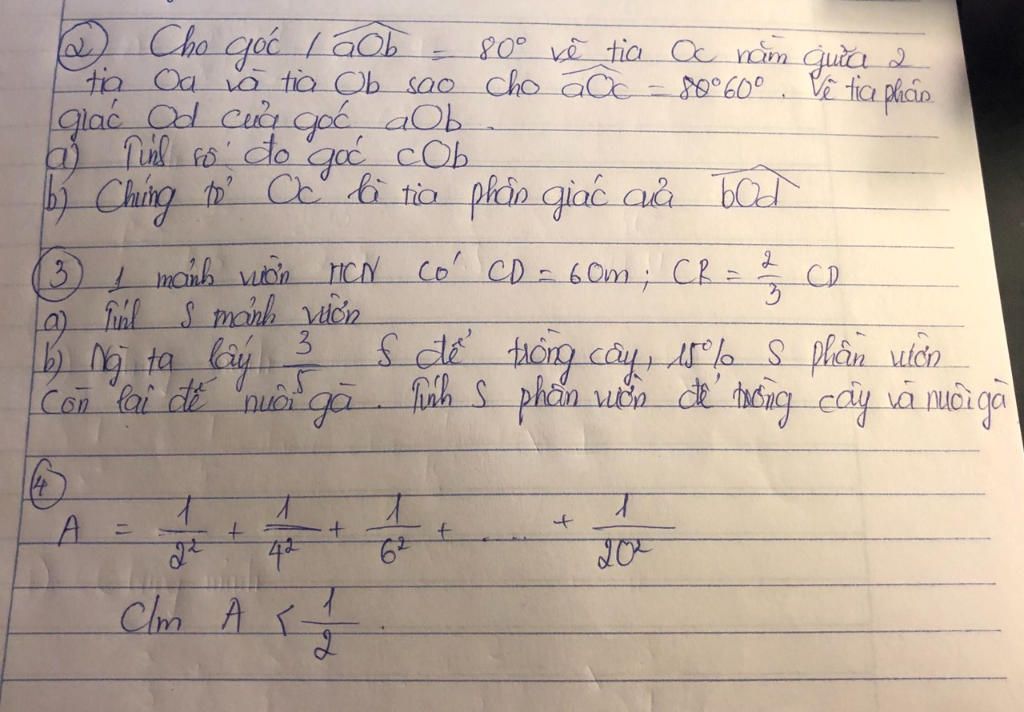 ② Cho góc aOb = 80° vẽ tia Oc nằm giữa 2
tia Oa và tia Ob sao cho aOc = 60°. Vẽ tia phân
giác Od của góc aOb.
a) Tính số đo góc cOb
b) Chứng tỏ Oc là tia phân giác của bOd
③ 1 mảnh vườn HCN có CD = 60m; CR = 2/3 CD
a) Tính S mảnh vườn
b) Ng ta lấy 3/5 S để trồng cây, 15% S phần vườn
còn lại để nuôi gà. Tính S phần vườn để trồng cây và nuôi gà
④
A = 1/2² + 1/4² + 1/6² + ..... + 1/20²
C/m A < 1/2.